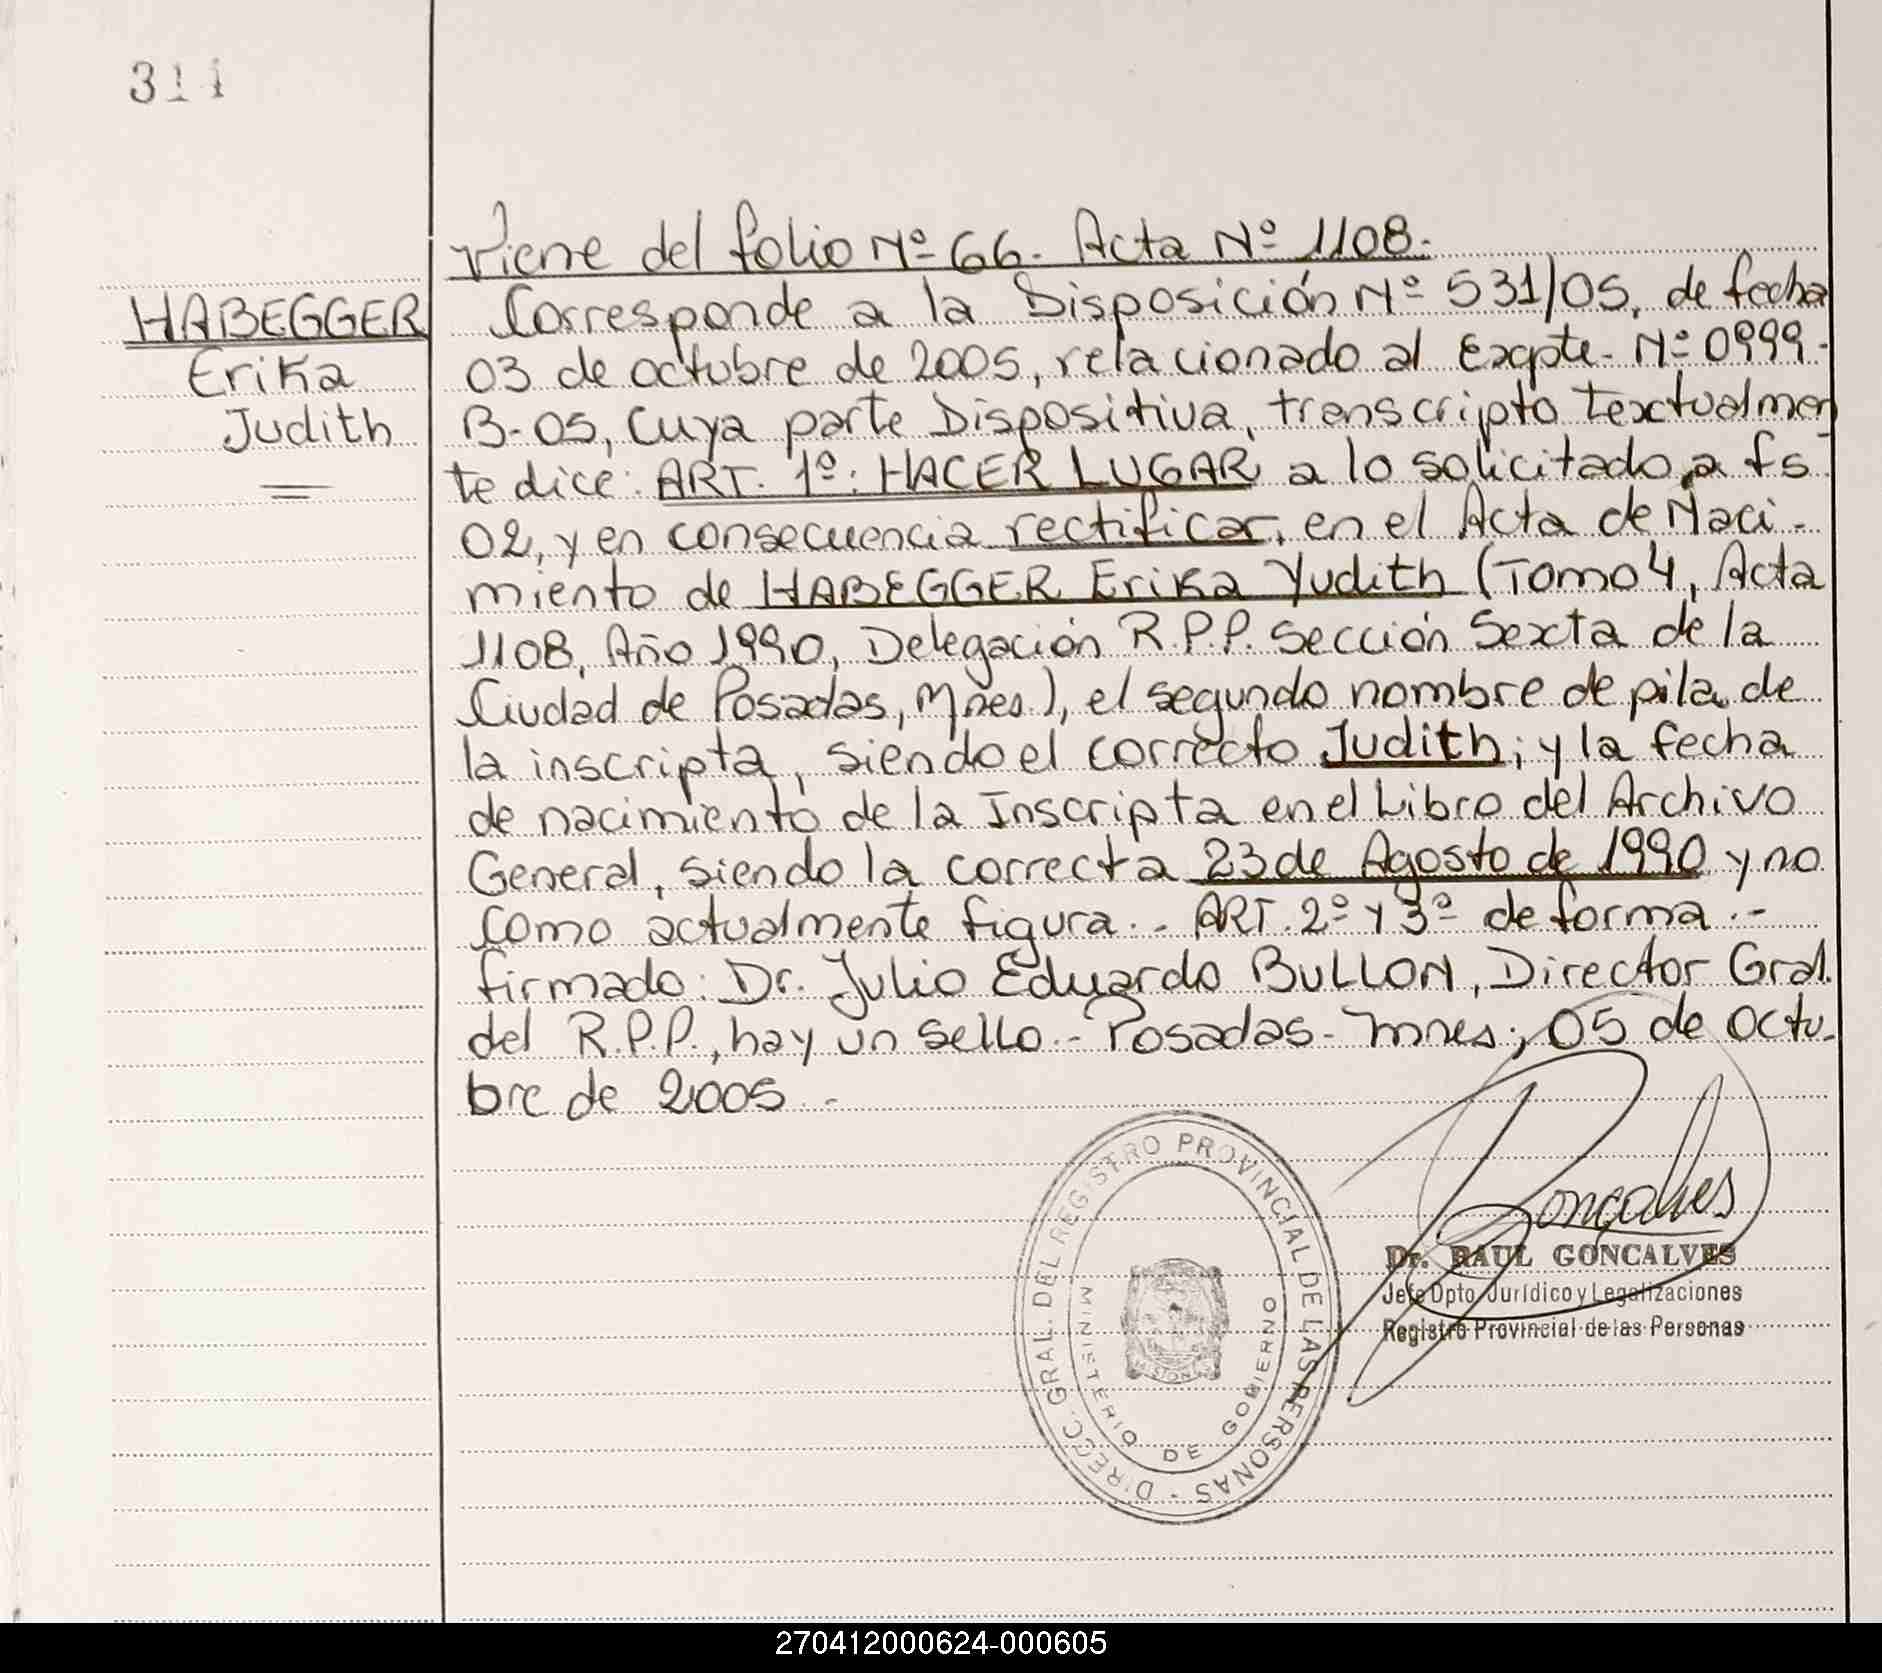 311
Viene del folio Nº 66. Acta Nº 1108.
HABEGGER
Erika
Judith
Corresponde a la Disposición Nº 531/05, de fecha
03 de octubre de 2005, relacionado al Expte. Nº 0999-
B-05, cuya parte Dispositiva, transcripto textualmen
te dice: ART. 1º: HACER LUGAR a lo solicitado a fs
02, y en consecuencia rectificar, en el Acta de Naci-
miento de HABEGGER Erika Yudith (Tomo 4, Acta
1108, Año 1990, Delegación R.P.P. Sección Sexta de la
Ciudad de Posadas, Mnes), el segundo nombre de pila de
la inscripta, siendo el correcto Judith; y la fecha
de nacimiento de la Inscripta en el Libro del Archivo
General, siendo la correcta 23 de Agosto de 1990 y no
como actualmente figura.- ART. 2º y 3º de forma.-
firmado: Dr. Julio Eduardo BULLON, Director Gral.
del R.P.P., hay un sello.- Posadas- Mnes; 05 de Octu-
bre de 2005.-
DIRECC. GRAL. DEL REGISTRO PROVINCIAL DE LAS PERSONAS -
MINISTERIO DE GOBIERNO
MISIONES
Goncalves
Dr. RAUL GONCALVES
Jefe Dpto. Jurídico y Legalizaciones
Registro Provincial de las Personas
270412000624-000605